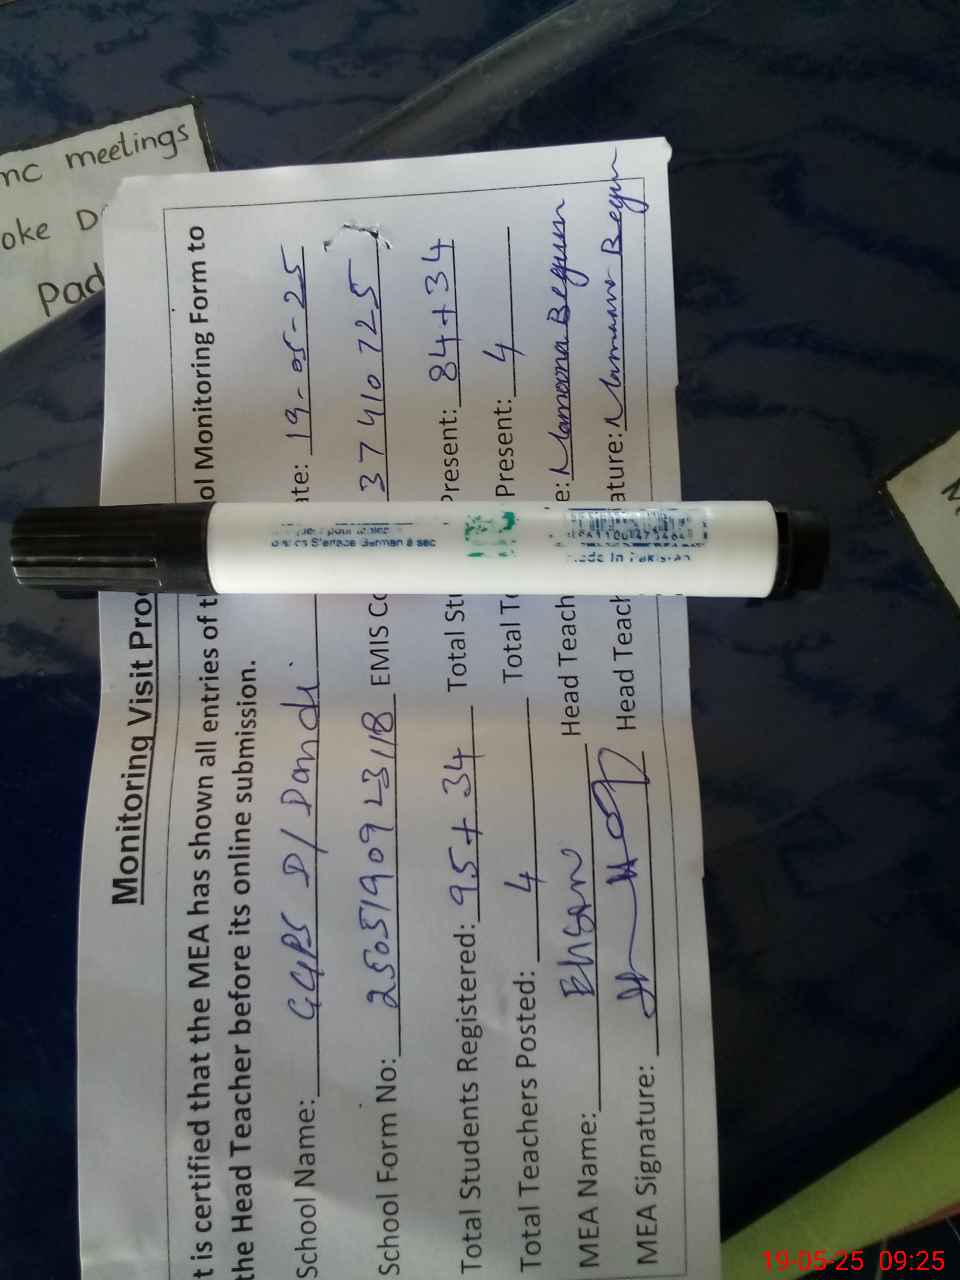 mc meetings
oke D
Pad
Monitoring Visit Pro
t is certified that the MEA has shown all entries of t ol Monitoring Form to
the Head Teacher before its online submission.
School Name: GGPS D/ Dandi. ate: 19-05-25
School Form No: 25051909 23118 EMIS Co 37410725
Total Students Registered: 95+34 Total Stu Present: 84+34
Total Teachers Posted: 4 Total Te Present: 4
MEA Name: Ehsan Head Teach e: Mamoona Begum
MEA Signature: Head Teach ature: Begum
German à sec
Made in Pakistan
19-05-25 09:25